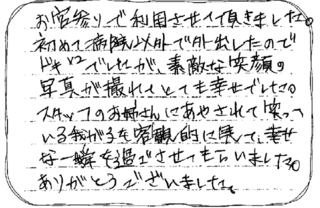 お宮参りで利用させて頂きました。
初めて病院以外で外出したので
ドキドキでしたが、素敵な笑顔の
写真が撮れてとても幸せでした。
スタッフのお姉さんにあやされて笑って
いる我が子を客観的に見て、幸せ
な一瞬を過ごさせてもらいました。
ありがとうございました。